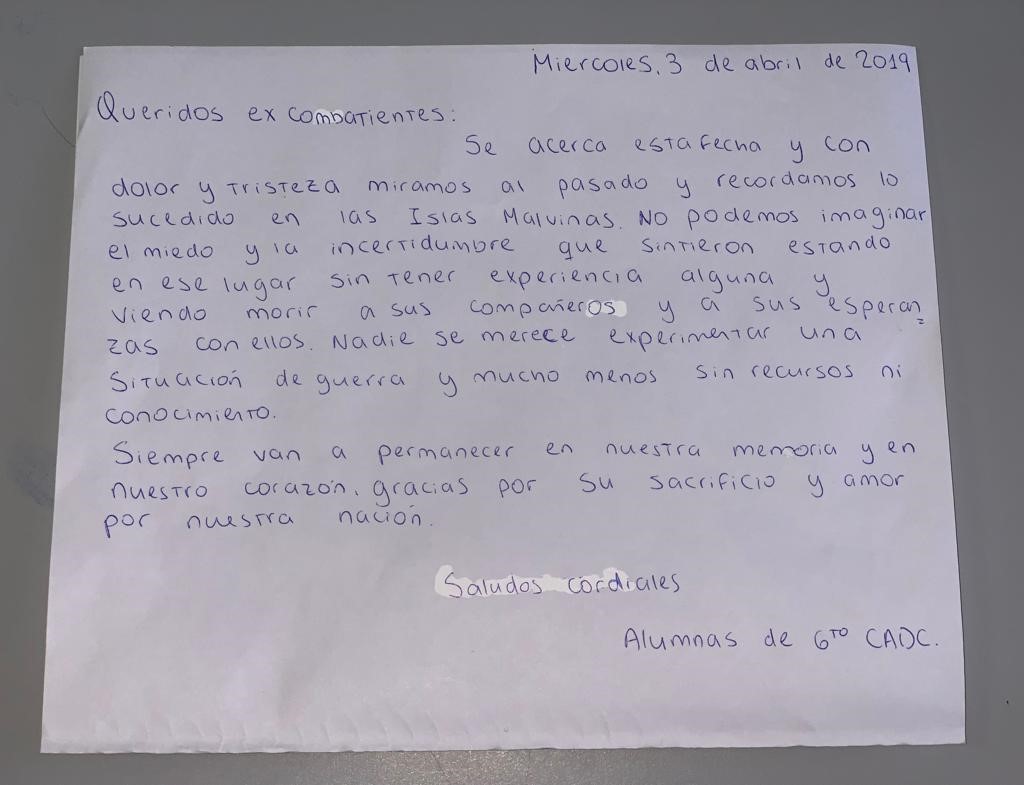 Miercoles, 3 de abril de 2019
Queridos ex combatientes:
Se acerca esta fecha y con
dolor y tristeza miramos al pasado y recordamos lo
sucedido en las Islas Malvinas. No podemos imaginar
el miedo y la incertidumbre que sintieron estando
en ese lugar sin tener experiencia alguna y
viendo morir a sus compañeros y a sus esperan=
zas con ellos. Nadie se merece experimentar una
situación de guerra y mucho menos sin recursos ni
conocimiento.
Siempre van a permanecer en nuestra memoria y en
nuestro corazón, gracias por su sacrificio y amor
por nuestra nación.
Saludos cordiales
Alumnas de 6to CADC.